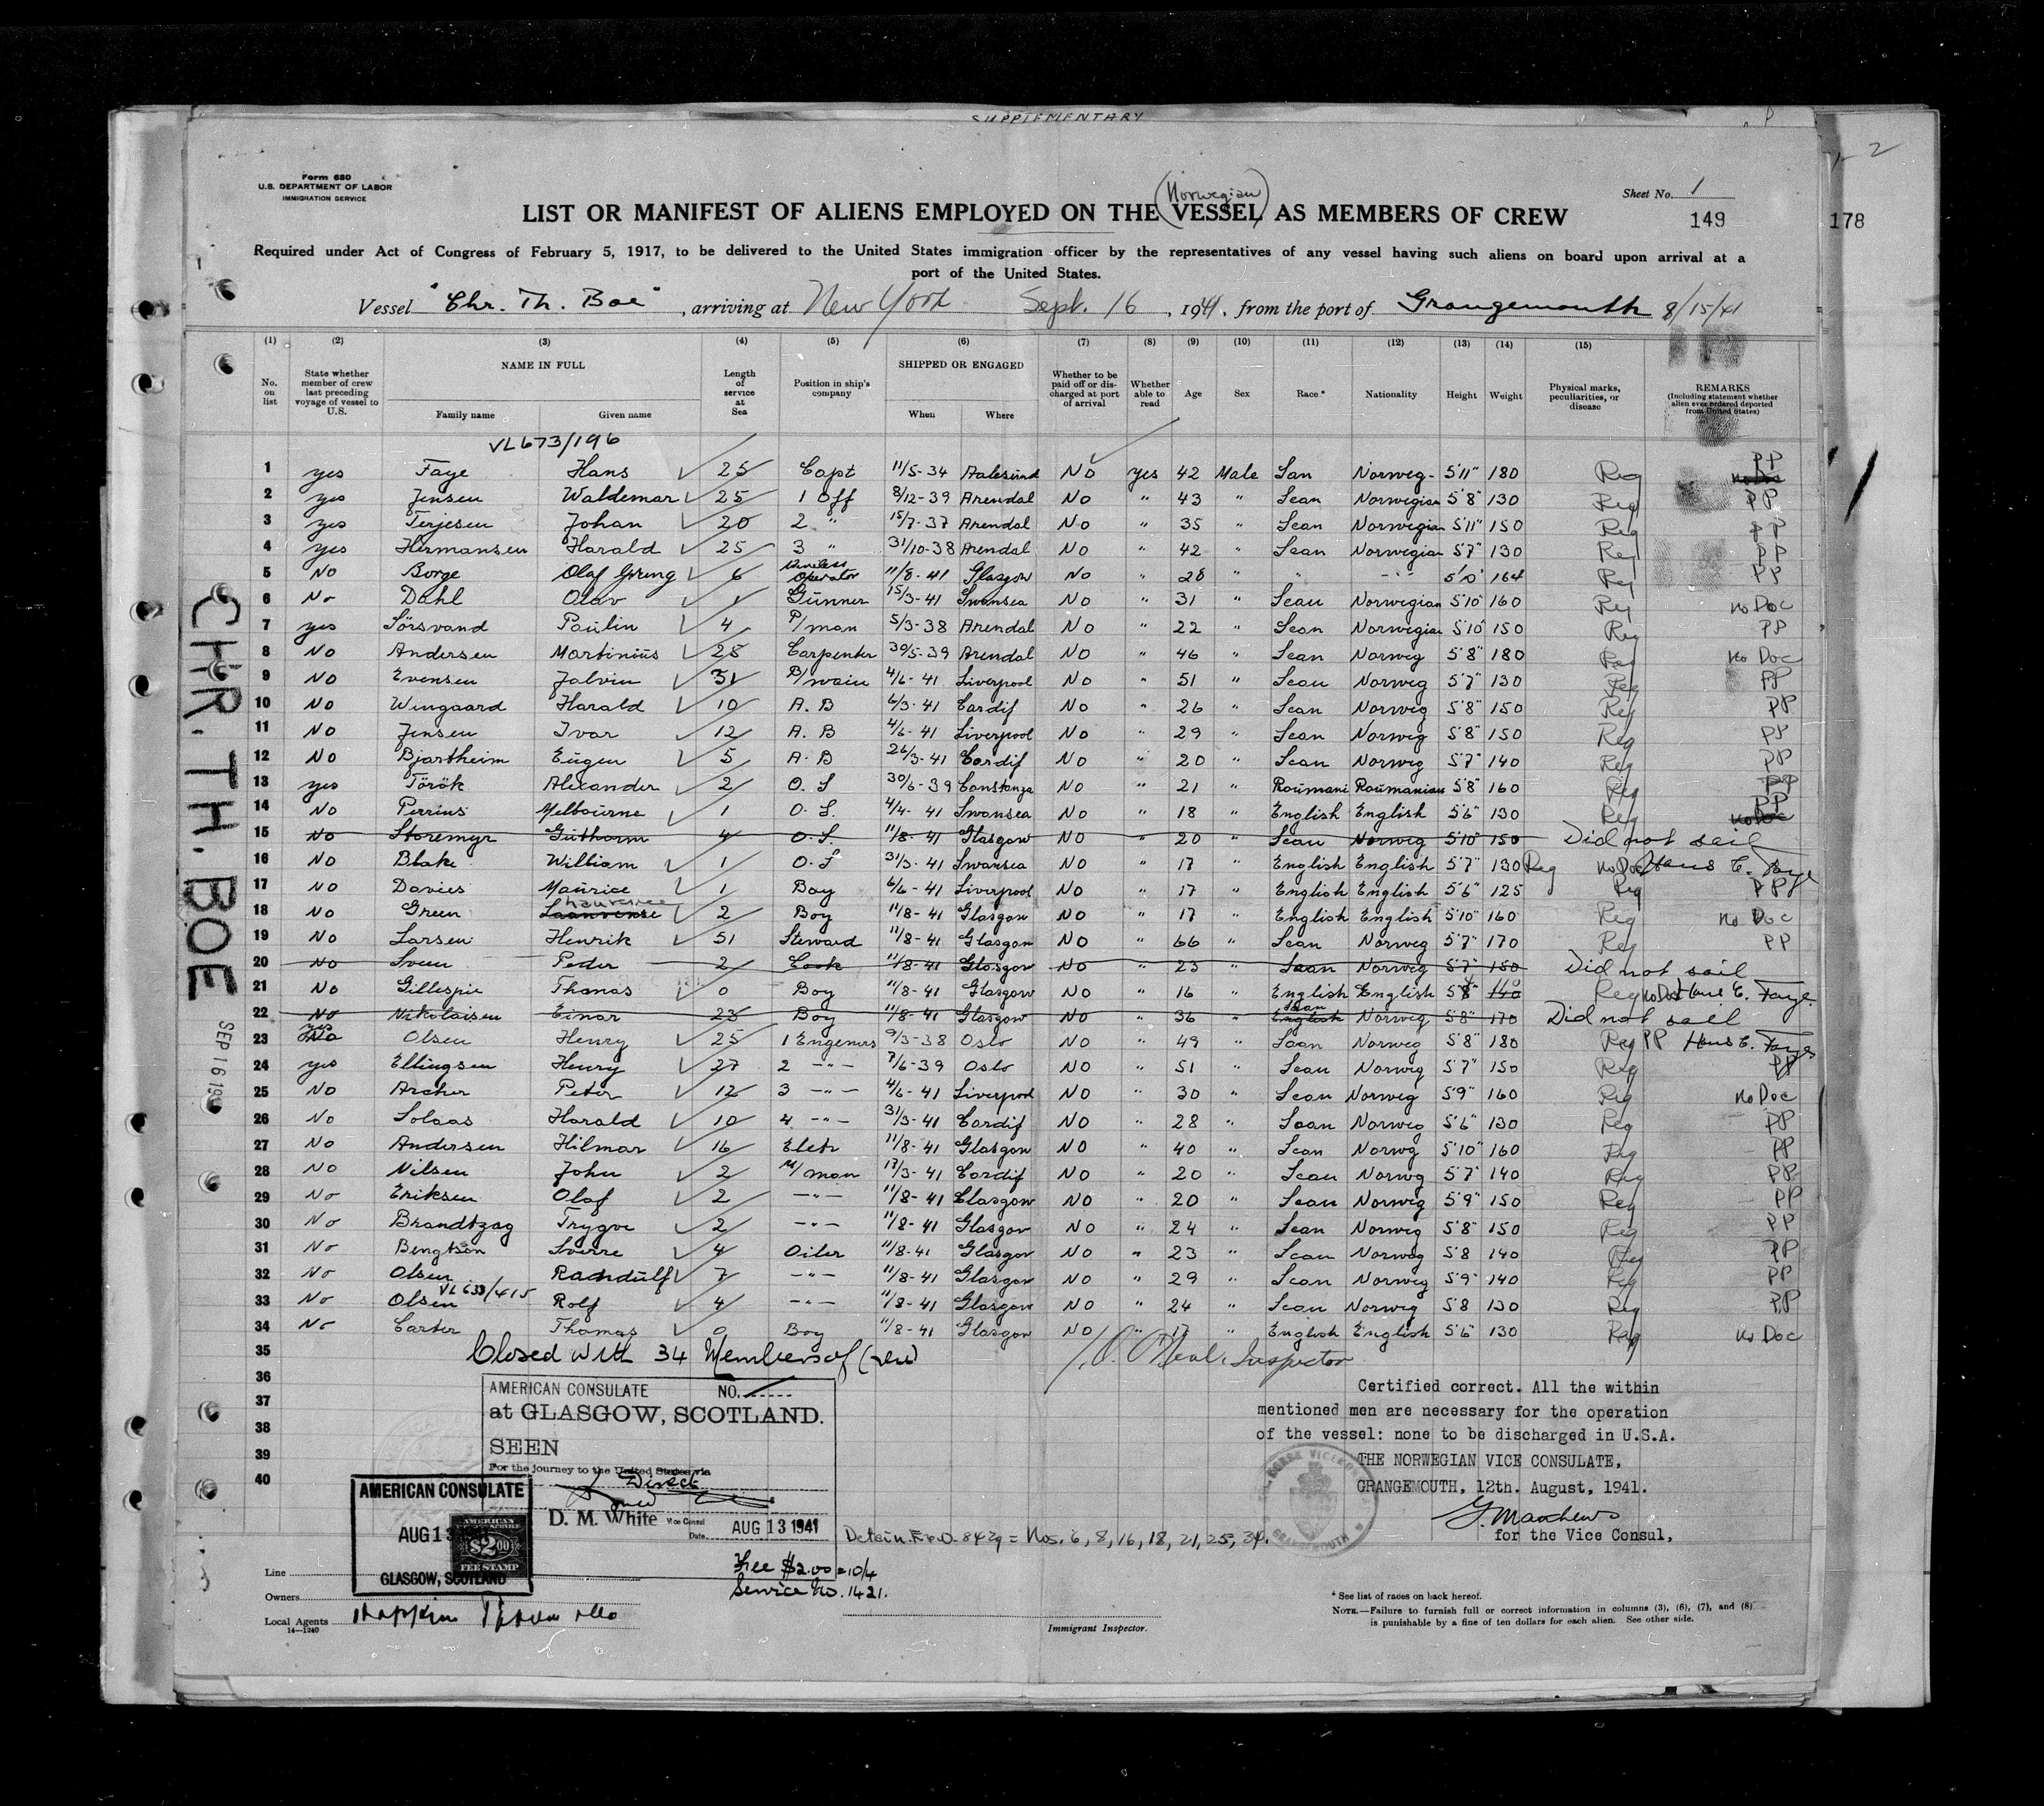 SUPPLEMENTARY
Form 680
U.S. DEPARTMENT OF LABOR
IMMIGRATION SERVICE
Sheet No. 1
149
178
2
(Norwegian)
LIST OR MANIFEST OF ALIENS EMPLOYED ON THE VESSEL AS MEMBERS OF CREW
Required under Act of Congress of February 5, 1917, to be delivered to the United States immigration officer by the representatives of any vessel having such aliens on board upon arrival at a
port of the United States.
Vessel "Chr. Th. Boe", arriving at New York Sept. 16, 1941, from the port of Grangemouth 8/15/41
(1) (2) (3) (4) (5) (6) (7) (8) (9) (10) (11) (12) (13) (14) (15)
No. on list
State whether member of crew last preceding voyage of vessel to U.S.
NAME IN FULL
Family name Given name
Length of service at Sea
Position in ship's company
SHIPPED OR ENGAGED
When Where
Whether to be paid off or discharged at port of arrival
Whether able to read
Age
Sex
Race*
Nationality
Height
Weight
Physical marks, peculiarities, or disease
REMARKS
(Including statement whether alien ever ordered deported from United States)
VL673/196
1 yes Faye Hans 25 Capt 11/5-34 Aalesund No yes 42 Male San Norweg- 5'11" 180 Reg PP
2 yes Jensen Waldemar 25 1 Off 8/12-39 Arendal No " 43 " Scan Norwegian 5'8" 130 Reg PP
3 yes Terjesen Johan 20 2 " 15/7-37 Arendal No " 35 " Scan Norwegian 5'11" 150 Reg PP
4 yes Hermansen Harald 25 3 " 31/10-38 Arendal No " 42 " Scan Norwegian 5'7" 130 Reg PP
5 No Borge Olaf 6 Wireless Operator 11/8-41 Glasgow No " 28 " " 5'10" 164 Reg PP
6 No Dahl Olav 1 Gunner 15/3-41 Swansea No " 31 " Scan Norwegian 5'10" 160 Reg No Doc
7 yes Sörsvand Paulin 4 P/man 5/3-38 Arendal No " 22 " Scan Norwegian 5'10" 150 Reg PP
8 No Andersen Martinius 28 Carpenter 30/5-39 Arendal No " 46 " Scan Norweg 5'8" 180 Reg No Doc
9 No Evensen Jalvin 31 B/swain 4/6-41 Liverpool No " 51 " Scan Norweg 5'7" 130 Reg PP
10 No Wingaard Harald 10 A.B 6/3-41 Cardif No " 26 " Scan Norweg 5'8" 150 Reg PP
11 No Jensen Ivar 12 A.B 4/6-41 Liverpool No " 29 " Scan Norweg 5'8" 150 Reg PP
12 No Bjartheim Eugen 5 A.B 26/3-41 Cardif No " 20 " Scan Norweg 5'7" 140 Reg PP
13 yes Török Alexander 2 O.S 30/6-39 Constanza No " 21 " Roumani Roumanian 5'8" 160 Reg PP
14 No Perrins Melbourne 1 O.S. 4/4-41 Swansea No " 18 " English English 5'6" 130 Reg PP
15 No Storemyr Guthorm 4 O.S. 11/8-41 Glasgow No " 20 " Scan Norweg 5'10" 150 Did not sail
16 No Blake William 1 O.S 31/3-41 Swansea No " 17 " English English 5'7" 130 Reg No Doc Hans E. Faye
17 No Davies Maurice 1 Boy 6/6-41 Liverpool No " 17 " English English 5'6" 125 Reg PP
18 No Green Laurence 2 Boy 11/8-41 Glasgow No " 17 " English English 5'10" 160 Reg No Doc
19 No Larsen Henrik 51 Steward 11/8-41 Glasgow No " 66 " Scan Norweg 5'7" 170 Reg PP
20 No Sveen Peder 2 Cook 11/8-41 Glasgow No " 23 " Scan Norweg 5'7" 150 Did not sail
21 No Gillespie Thomas 0 Boy 11/8-41 Glasgow No " 16 " English English 140 Reg No Doc Hans E. Faye
22 No Nikolaisen Einar 23 Boy 11/8-41 Glasgow No " 36 " English Scan Norweg 5'8" 170 Did not sail
23 yes Olsen Henry 25 1 Engeners 9/3-38 Oslo No " 49 " Scan Norweg 5'8" 180 Reg PP Hans E. Faye
24 yes Ellingsen Henry 27 2 -"- 7/6-39 Oslo No " 51 " Scan Norweg 5'7" 150 Reg PP
25 No Archer Peter 12 3 -"- 4/6-41 Liverpool No " 30 " Scan Norweg 5'9" 160 Reg No Doc
26 No Solaas Harald 10 4 -"- 31/3-41 Cardif No " 28 " Scan Norweg 5'6" 130 Reg PP
27 No Andersen Hilmar 16 Eletr 11/8-41 Glasgow No " 40 " Scan Norwg 5'10" 160 Reg PP
28 No Nilsen John 2 M/man 17/3-41 Cardif No " 20 " Scan Norwg 5'7" 140 Reg PP
29 No Eriksen Olaf 2 -"- 11/8-41 Glasgow No " 20 " Scan Norweg 5'9" 150 Reg PP
30 No Brandtzag Trygve 2 -"- 11/8-41 Glasgow No " 24 " Scan Norweg 5'8" 150 Reg PP
31 No Bengtson Sverre 4 Oiler 11/8-41 Glasgow No " 23 " Scan Norweg 5'8 140 Reg PP
32 No Olsen Randulf 7 -"- 11/8-41 Glasgow No " 29 " Scan Norweg 5'9" 140 Reg PP
VL633/415
33 No Olsen Rolf 4 -"- 11/8-41 Glasgow No " 24 " Scan Norweg 5'8 130 Reg PP
34 No Carter Thomas 0 Boy 11/8-41 Glasgow No " 17 " English English 5'6" 130 Reg No Doc
35 Closed with 34 Members of Inspector
36
37
38
39
40
CHR. TH. BOE
SEP 16 19
AMERICAN CONSULATE NO.
at GLASGOW, SCOTLAND.
SEEN
For the journey to the United States via
Direct
D. M. White Vice Consul
Date AUG 13 1941
AMERICAN CONSULATE
AUG 13
AMERICAN
$2.00
FEE STAMP
GLASGOW, SCOTLAND
Fee $2.00 = 10/4
Service No. 1421.
Certified correct. All the within
mentioned men are necessary for the operation
of the vessel: none to be discharged in U.S.A.
THE NORWEGIAN VICE CONSULATE,
GRANGEMOUTH, 12th. August, 1941.
G. Matthews
for the Vice Consul,
GRANGEMOUTH
Detain = Nos. 6, 8, 16, 18, 21, 25, 34.
Line
Owners
Local Agents
14—1240
Immigrant Inspector.
* See list of races on back hereof.
NOTE.—Failure to furnish full or correct information in columns (3), (6), (7), and (8)
is punishable by a fine of ten dollars for each alien. See other side.